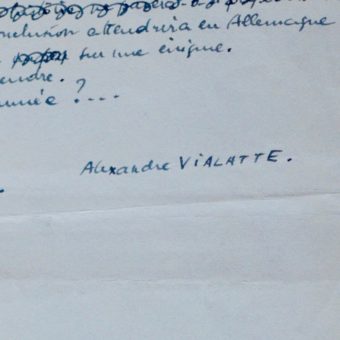 onclusion attendrira en Allemagne
sur une énigme.
endre.
année ? ....
Alexandre VIALATTE.